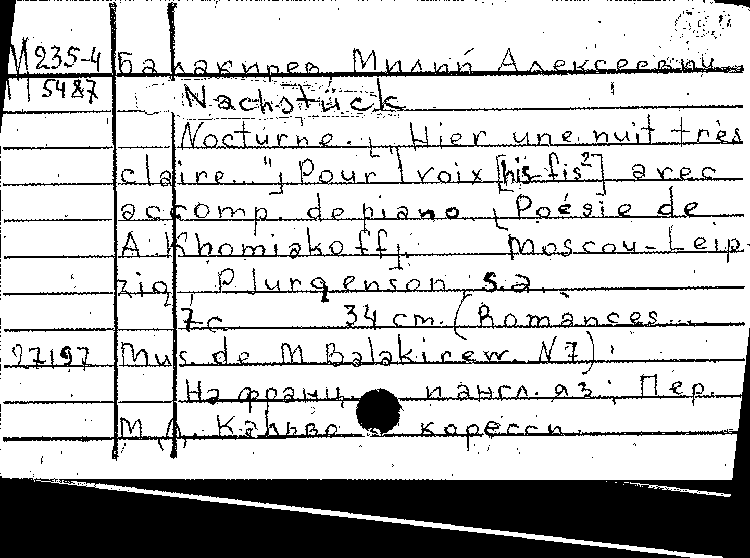 М 235-4 Балакирев, Милий Алексеевич
М 5487 Nachstück
Nocturne. [„Hier une nuit très
claire..."] Pour 1 voix [his-fis²] avec
accomp. de piano. [Poésie de
A. Khomiakoff]. Moscou-Leip-
zig, P. Jurgenson, s.a.
7 с. 34 cm. (Romances...
27197 Mus. de M. Balakirew. N 7).
На франц. и англ. яз; Пер.
М.Д. Кальво корессы